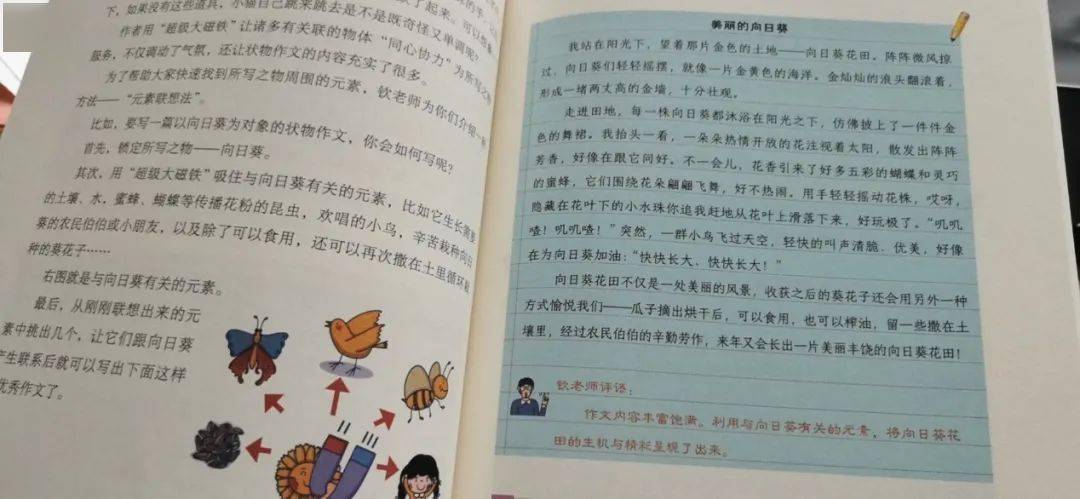 下，如果没有这些道具，小猫自己跳来跳去是不是既奇怪又单调呢？
作者用“超级大磁铁”让诸多有关联的物体“同心协力”为所写之物
服务，不仅调动了气氛，还让状物作文的内容充实了很多。
为了帮助大家快速找到所写之物周围的元素，钦老师为你们介绍一种
方法——“元素联想法”。
比如，要写一篇以向日葵为对象的状物作文，你会如何写呢？
首先，锁定所写之物——向日葵。
其次，用“超级大磁铁”吸住与向日葵有关的元素，比如它生长需要
的土壤、水，蜜蜂、蝴蝶等传播花粉的昆虫，欢唱的小鸟，辛苦栽种向日
葵的农民伯伯或小朋友，以及除了可以食用，还可以再次撒在土里循环栽
种的葵花子……
右图就是与向日葵有关的元素。
最后，从刚刚联想出来的元
素中挑出几个，让它们跟向日葵
产生联系后就可以写出下面这样
优秀作文了。
美丽的向日葵
我站在阳光下，望着那片金色的土地——向日葵花田。阵阵微风掠
过，向日葵们轻轻摇摆，就像一片金黄色的海洋。金灿灿的浪头翻滚着，
形成一堵两丈高的金墙，十分壮观。
走进田地，每一株向日葵都沐浴在阳光之下，仿佛披上了一件件金
色的舞裙。我抬头一看，一朵朵热情开放的花注视着太阳，散发出阵阵
芳香，好像在跟它问好。不一会儿，花香引来了好多五彩的蝴蝶和灵巧
的蜜蜂，它们围绕花朵翩翩飞舞，好不热闹。用手轻轻摇动花株，哎呀，
隐藏在花叶下的小水珠你追我赶地从花叶上滑落下来，好玩极了。“叽叽
喳！叽叽喳！”突然，一群小鸟飞过天空，轻快的叫声清脆、优美，好像
在为向日葵加油：“快快长大、快快长大！”
向日葵花田不仅是一处美丽的风景，收获之后的葵花子还会用另外一种
方式愉悦我们——瓜子摘出烘干后，可以食用，也可以榨油，留一些撒在土
壤里，经过农民伯伯的辛勤劳作，来年又会长出一片美丽丰饶的向日葵花田！
钦老师评语：
作文内容丰富饱满。利用与向日葵有关的元素，将向日葵花
田的生机与精彩呈现了出来。